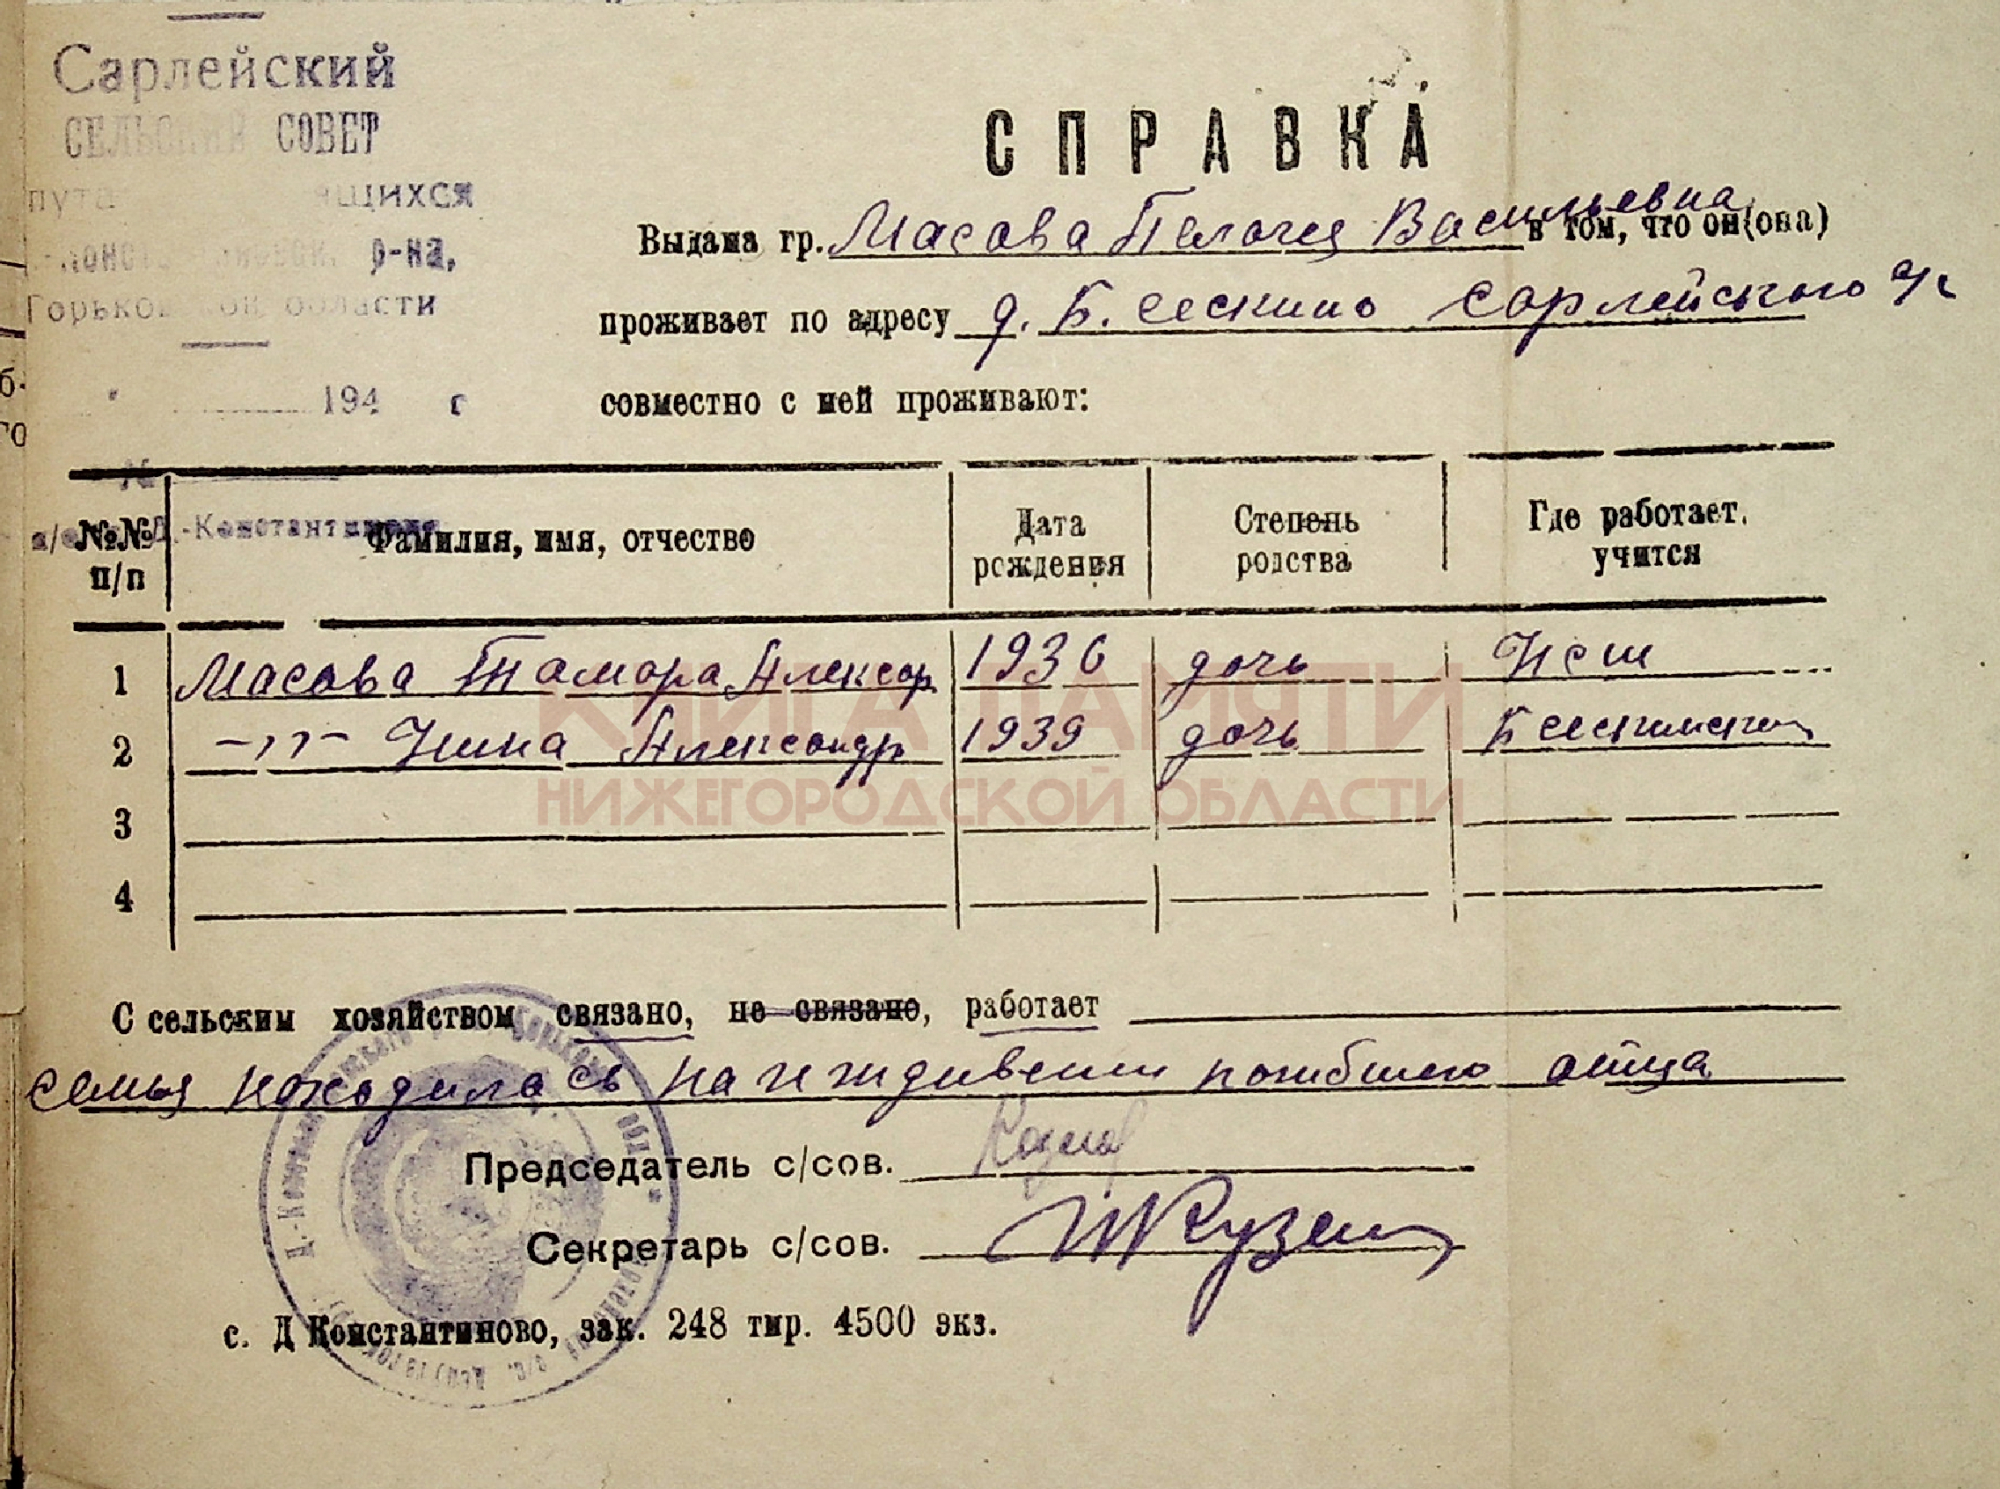 Сарлейский
СЕЛЬСКИЙ СОВЕТ
р-на,
Горьковской области
194 г
СПРАВКА
Выдана гр. Масова Пелагея Васильевна в том, что он(она)
проживает по адресу д. Б. Сескино Сарлейского с/с
совместно с ней проживают:
№№ п/п
Фамилия, имя, отчество
Дата рождения
Степень родства
Где работает, учится
1 Масова Тамара Александр 1936 дочь НСШ
2 -„- Нина Александр 1939 дочь Б Сескинская
3
4
КНИГА ПАМЯТИ
НИЖЕГОРОДСКОЙ ОБЛАСТИ
С сельским хозяйством связано, не связано, работает
семья находилась на иждивении погибшего отца
Председатель с/сов.
Секретарь с/сов.
с. Д Константиново, зак. 248 тир. 4500 экз.